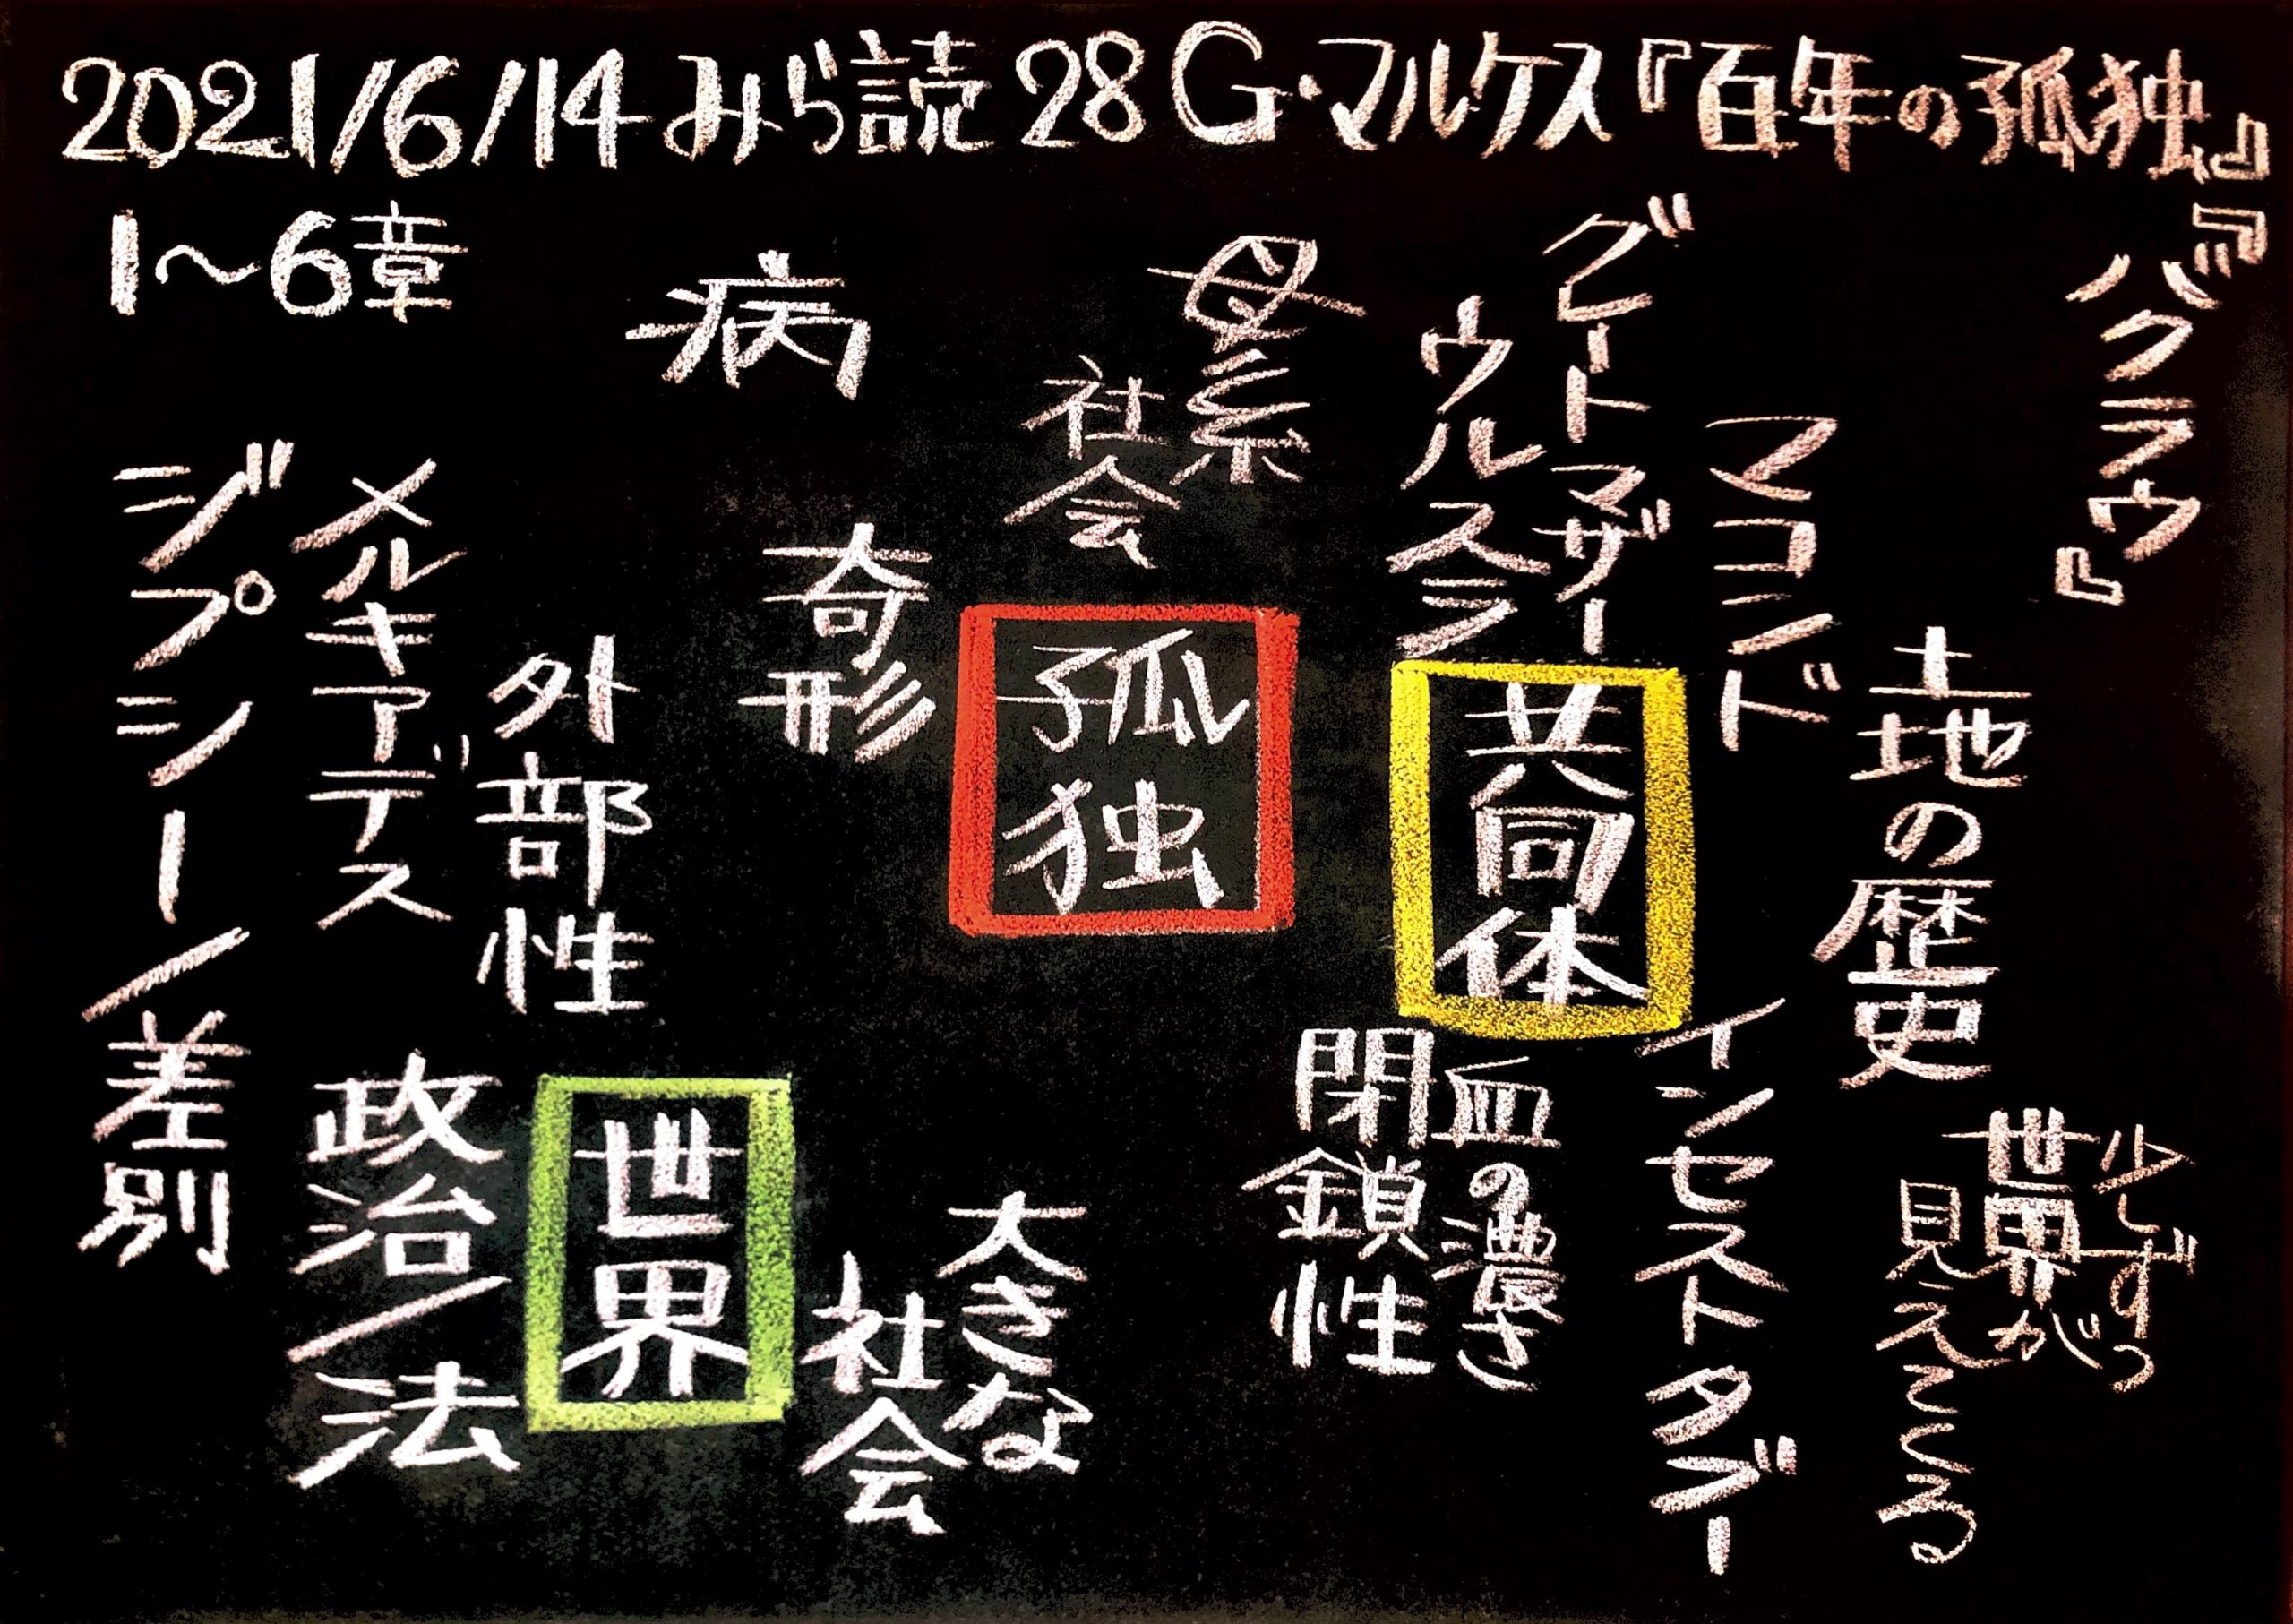 2021/6/14 みら読 28 G・マルケス『百年の孤独』
1～6章
『バクラウ』
土地の歴史
少しずつ
世界が
見えてくる
マコンド
グレートマザー
ウルスラ
共同体
インセストタブー
血の濃さ
閉鎖性
母系
社会
孤独
病
奇形
大きな
社会
世界
外部性
メルキアデス
政治/法
ジプシー/差別